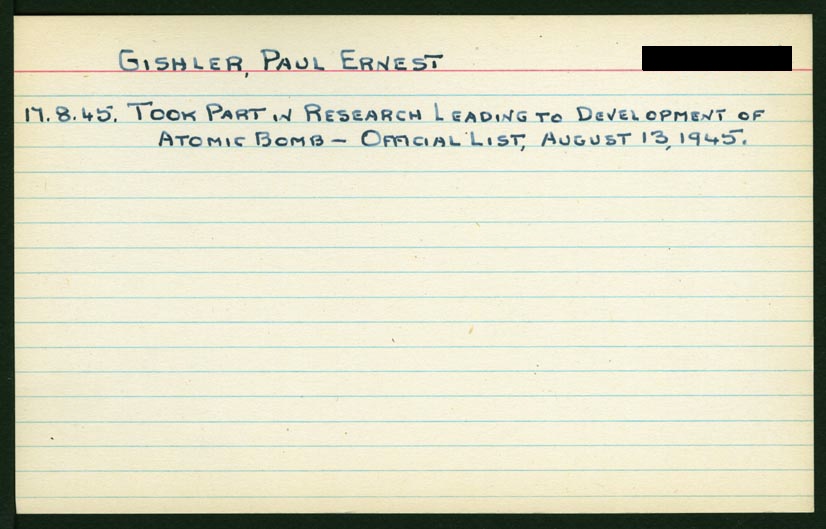 GISHLER, PAUL ERNEST
17.8.45. TOOK PART IN RESEARCH LEADING TO DEVELOPMENT OF
ATOMIC BOMB – OFFICIAL LIST, AUGUST 13, 1945.